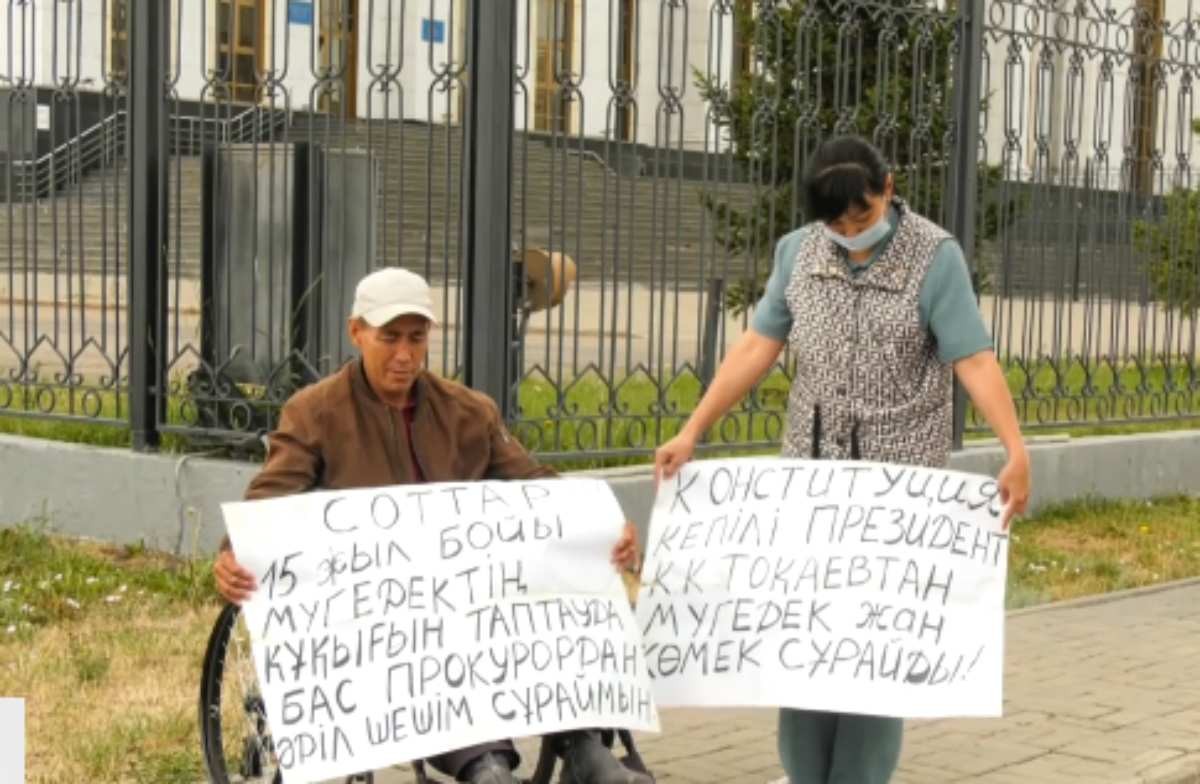 СОТТАР
15 ЖЫЛ БОЙЫ
МУГЕДЕКТІҢ
ҚҰҚЫҒЫН ТАПТАУДА
БАС ПРОКУРОРДАН
ӘРІЛ ШЕШІМ СҰРАЙМЫН
КОНСТИТУЦИЯ
КЕПІЛІ ПРЕЗИДЕНТ
Қ.К ТОҚАЕВТАН
МУГЕДЕК ЖАН
КӨМЕК СҰРАЙДЫ!